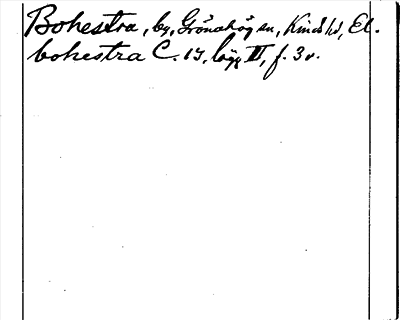 Bohestra, by, Grönahög sn, Kinds hd, El.
bohestra C. 15, lägg II, f. 3 v.